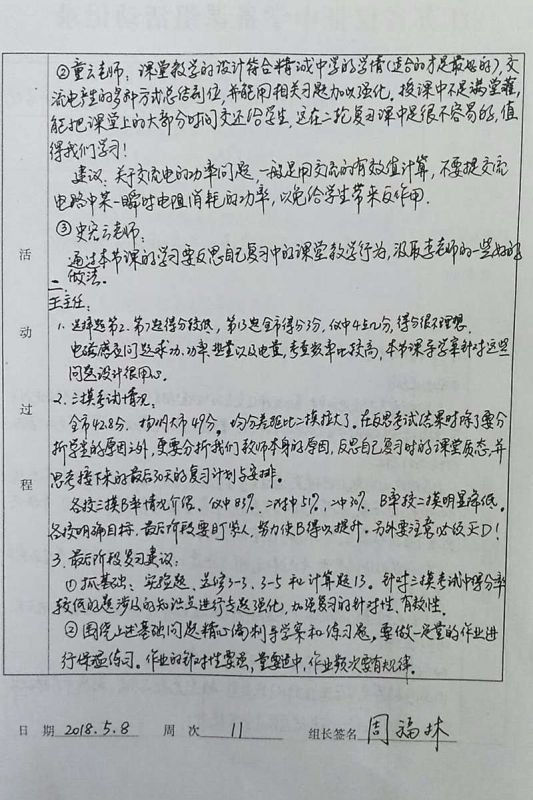 ②童云老师：课堂教学的设计符合精诚中学的学情（适合的才是最好的），交
流电产生的多种方式总结到位，并能用相关习题加以强化。授课中不是满堂灌，
能把课堂上的大部分时间交还给学生，这在二轮复习课中是很不容易的，值
得我们学习！
建议：关于交流电的功率问题一般是用交流的有效值计算，不要提交流
电路中某一瞬时电阻消耗的功率，以免给学生带来反作用.
③史宏云老师：
通过本节课的学习要反思自己复习中的课堂教学行为，汲取李老师的一些好的
做法.
二、
王主任：
1. 选择题第2、第7题得分较低，第13题全市得分3分，仪中4点几分，得分很不理想.
电磁感应问题求功、功率、热量以及电量，考查频率比较高，本节课导学案针对这些
问题设计很用心.
2. 三摸考试情况
全市42.8分，扬州大市49分。均分差距比二模拉大了。在反思考试结果时除了要分
析学生的原因之外，更要分析我们教师本身的原因，反思自己复习时的课堂质态，并
思考接下来的最后30天的复习计划与安排。
各校三摸B率情况介绍、仪中83%、二中51%、B率较二摸明显降低。
各校明确目标，最后阶段要盯紧人，努力使B得以提升。另外要注意必修灭D！
3. 最后阶段复习建议：
①抓基础：实验题、选修3-3、3-5和计算题13。针对三摸考试中得分率
较低的题涉及的知识点进行专题强化，加强复习的针对性、有效性。
②围绕上述基础问题精心编制导学案和练习题，要做一定量的作业进
行保温练习。作业的针对性要强，量要适中，作业频次要有规律。
活
动
过
程
日 期 2018.5.8 周 次 11 组长签名 周福林